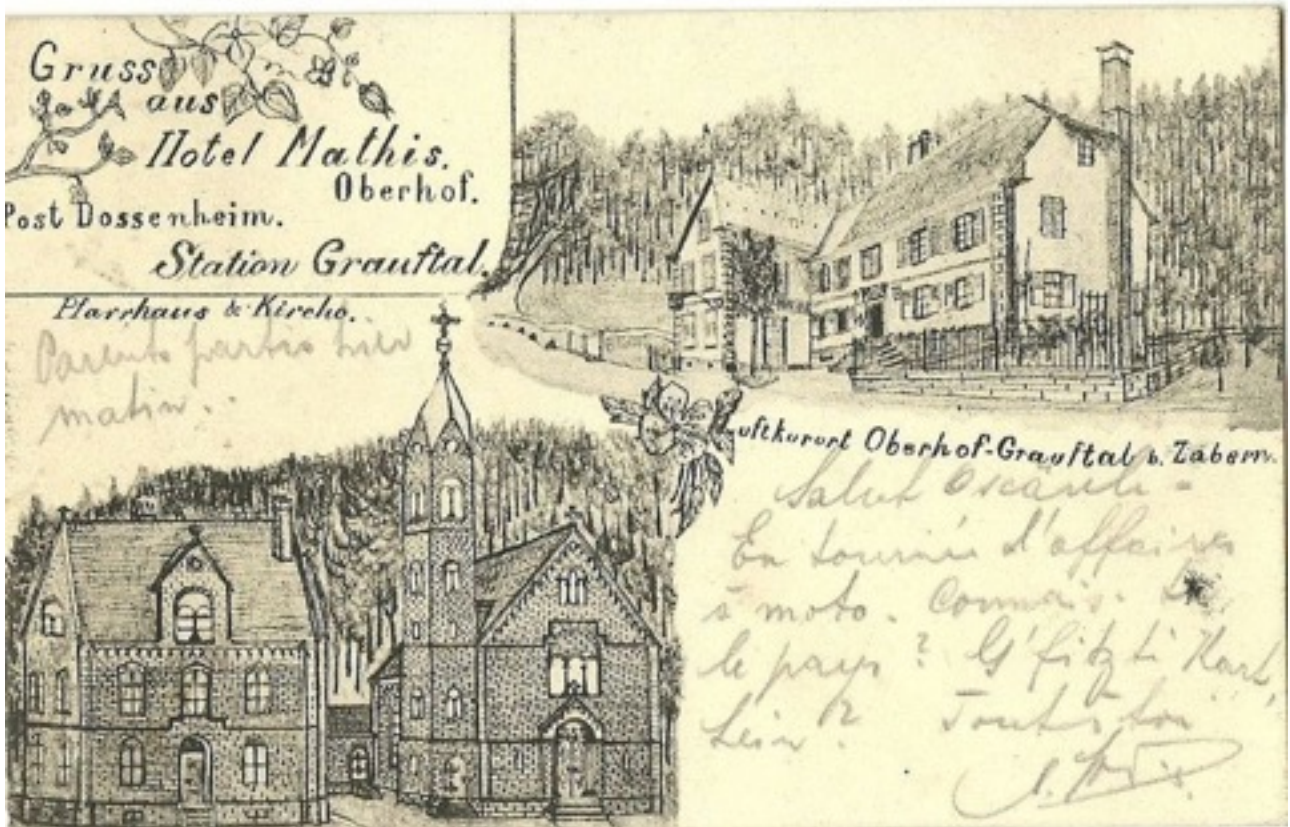 Gruss
aus
Hotel Mathis.
Oberhof.
Post Dossenheim.
Station Grauftal.
Pfarrhaus & Kirche.
Parents partis hier
matin..
Luftkurort Oberhof-Grauftal b. Zabern.
Salut
En tournée d'affaires
à moto. Connais-
le pays ?
hein ?